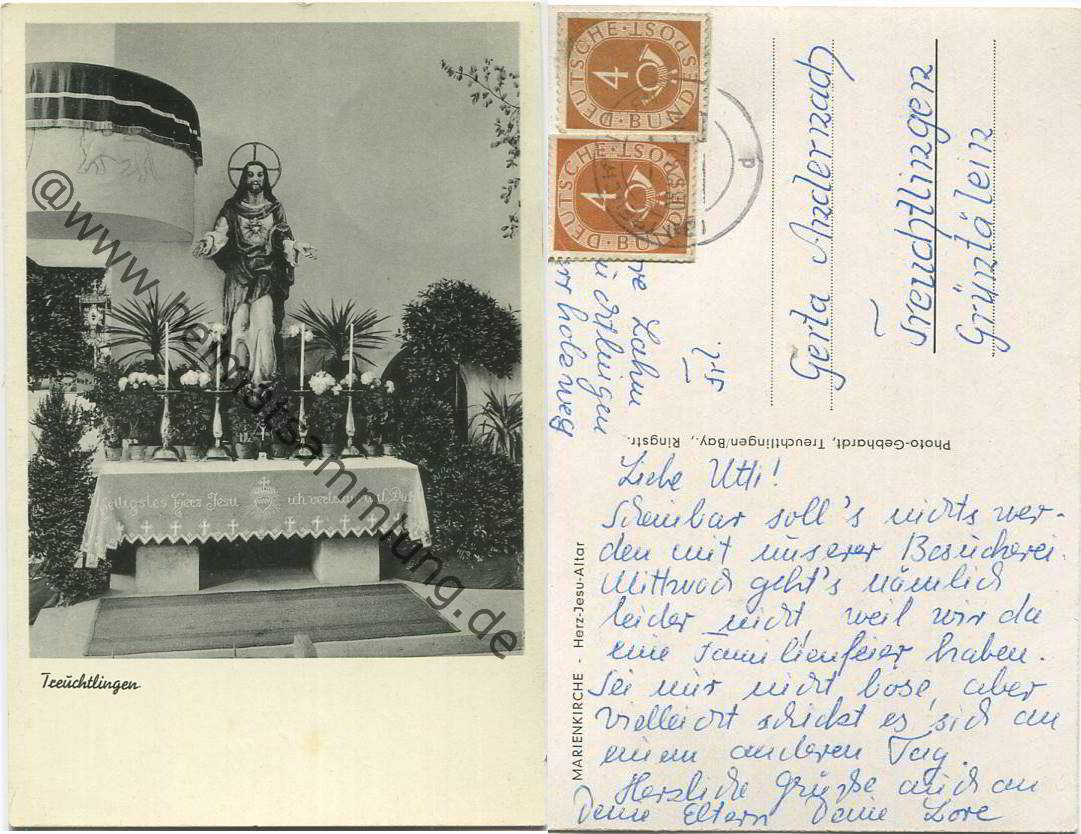 Heiligstes Herz Jesu ich vertraue auf Dich
Treuchtlingen
@www.heimatsammlung.de
DEUTSCHE·POST
4
BUNDES
DEUTSCHE·POST
4
BUNDES
Lahm
Treuchtlingen
Frl.
Gerta Anzdernach
Treuchtlingen
Grüntälein
Photo-Gebhardt, Treuchtlingen/Bay., Ringstr.
MARIENKIRCHE - Herz-Jesu-Altar
Liebe Utti!
Scheinbar soll's nichts wer-
den mit unserer Besucherei.
Mittwoch geht's nämlich
leider nicht, weil wir da
eine Familienfeier haben.
Sei mir nicht böse, aber
vielleicht schickt es sich an
einem anderen Tag.
Herzliche Grüße auch an
Deine Eltern Deine Lore